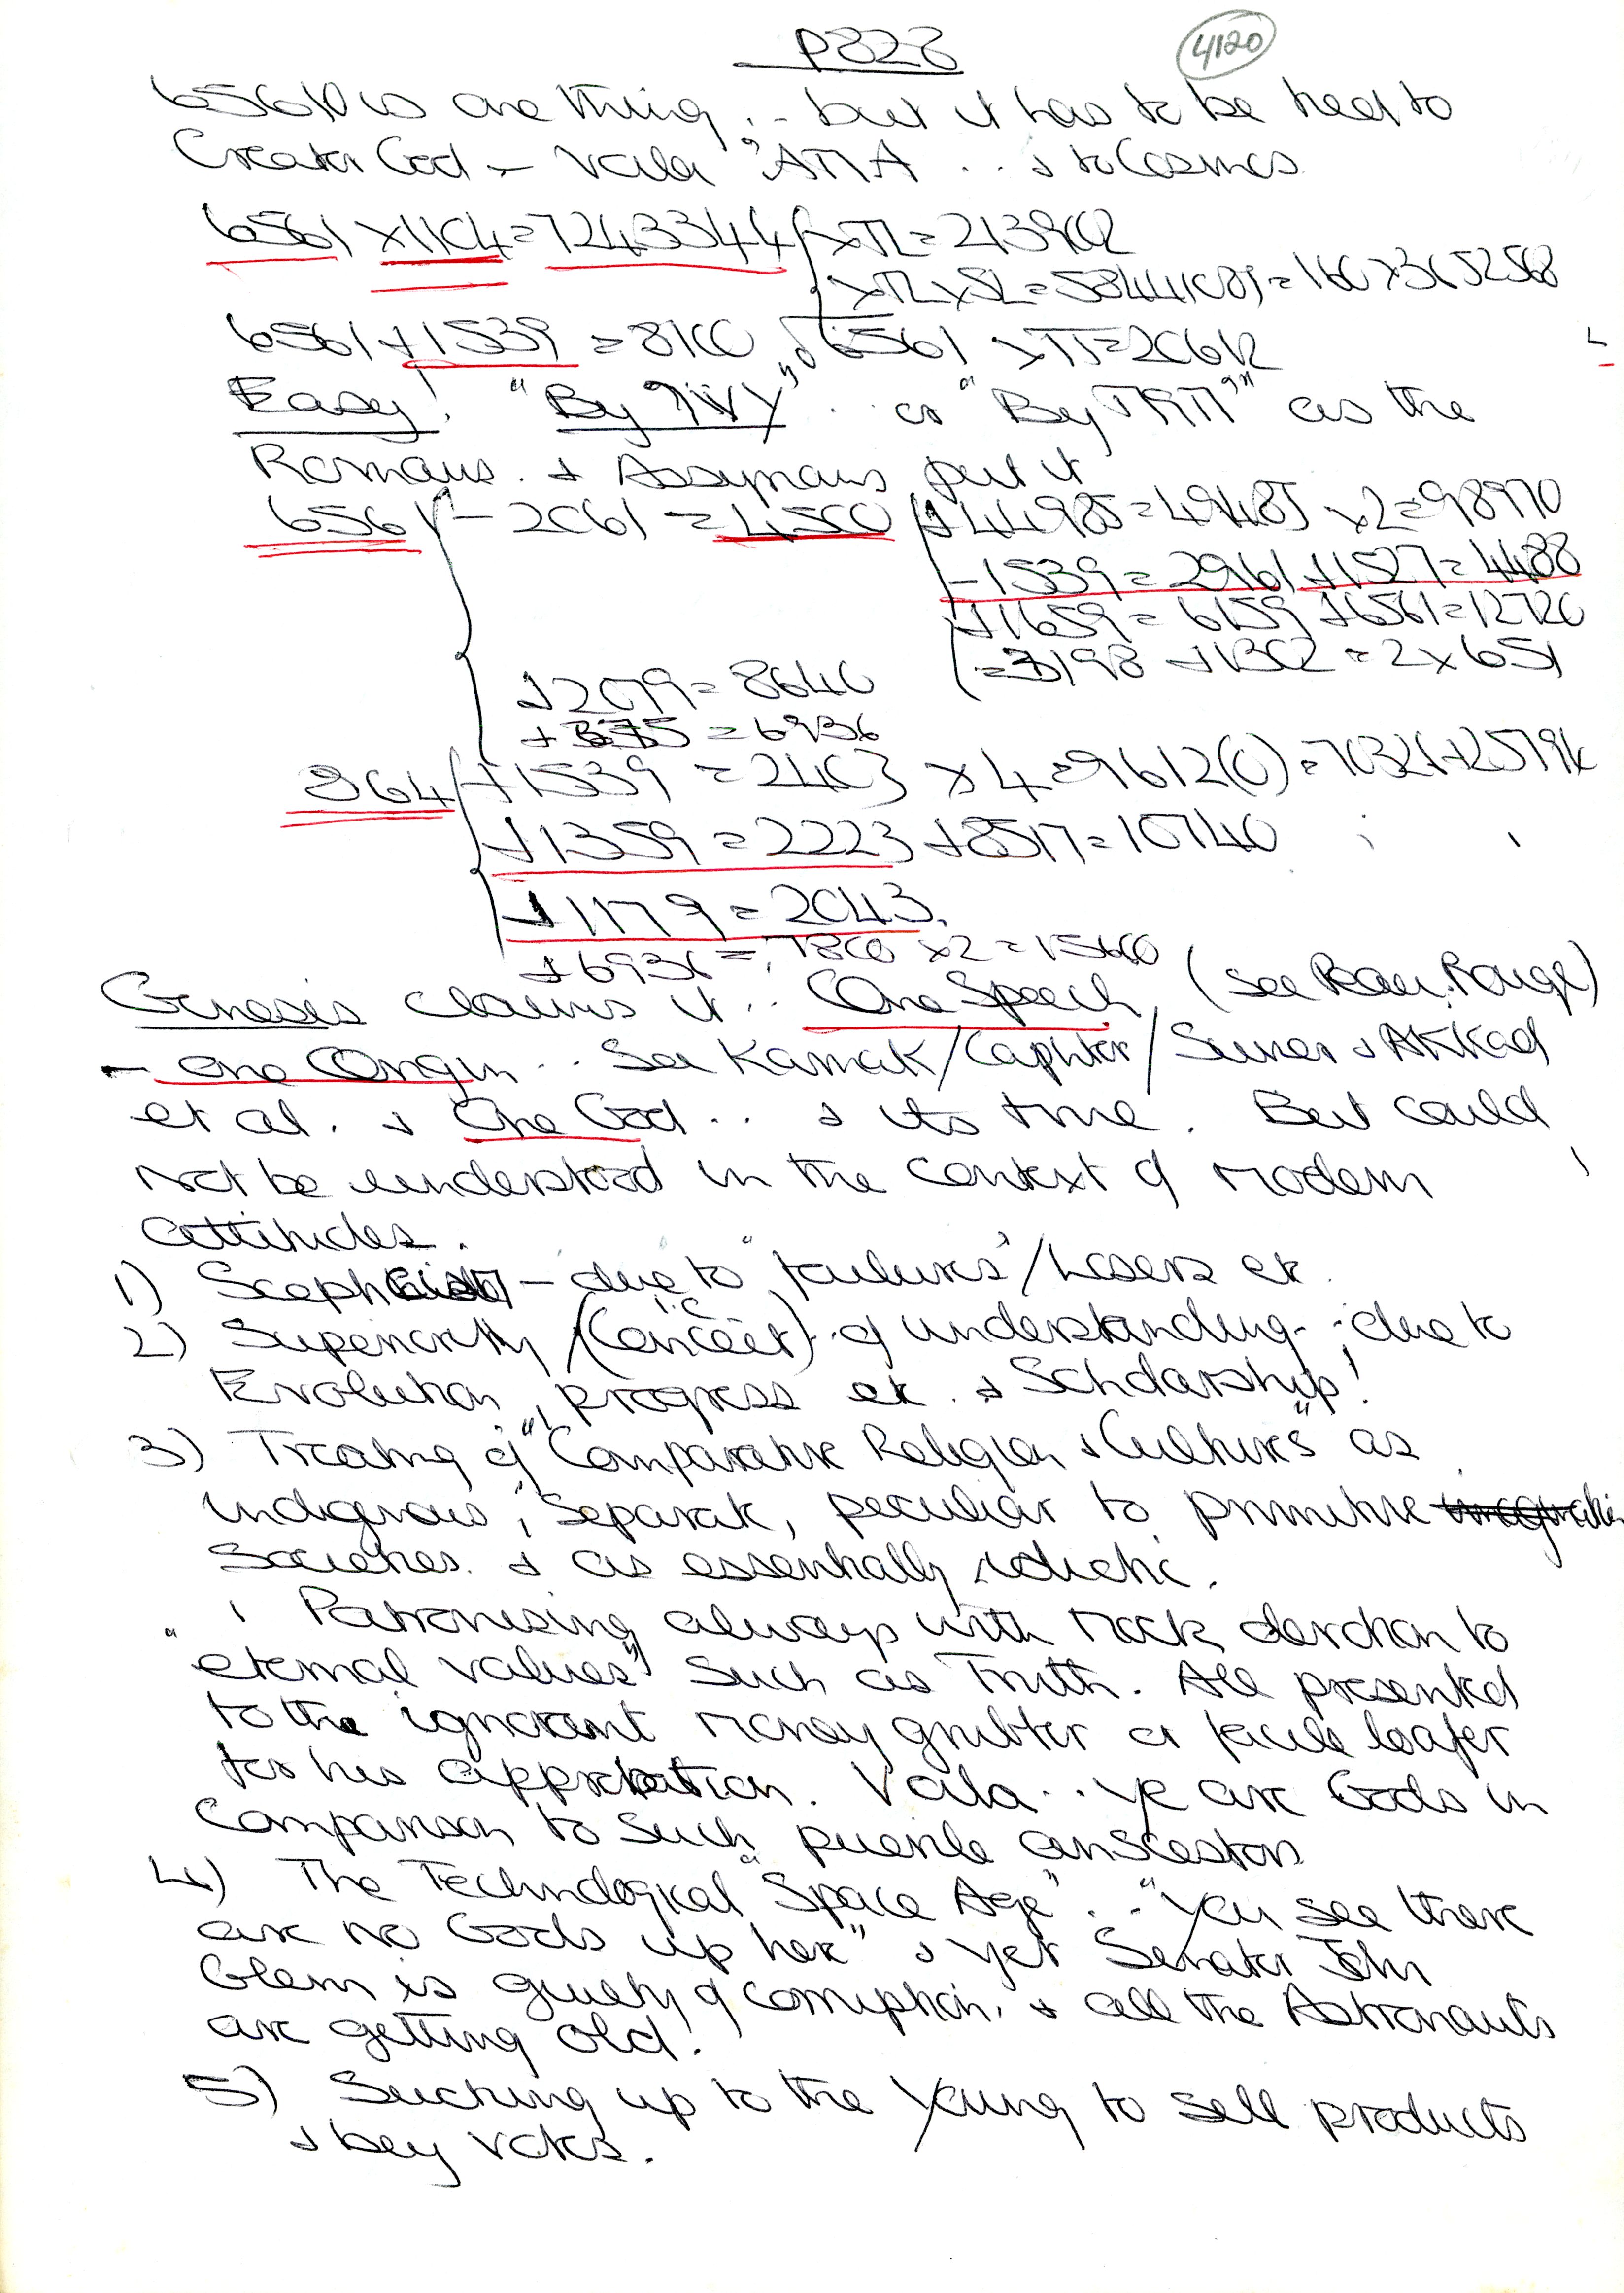 P828
4120
is one thing .. but it has to be tied to
Creator God – Voila "ATTA .. & to Cosmos
6561 x1104=7243344 xTL=213902
xTLxSL=58441089=160x3652568
6561+1539 = 8100, √6561 xTT=20612
Easy! "By .. or "By as the
Romans. & Assyrians put it
6561 - 2061 = 4500 +44985=49485 x2=98970
-1539=2961+1527=4488
+1659=6159+6561=12720
=3198+1302=2x651
+2079=8640
+375=6936
864 +1539=2403 x4=9612(0)=70326+25794
+1359=2223+8517=10740
+1179=2043.
+6936=7800 x2=15600
Genesis claims it .. One Speech, (see Rouge)
– one Origin .. See Karnak/Caphtor/Sumer & AKKad
et al. & One God .. & its true. But could
not be understood in the context of modern
attitudes.
1) – due to "failures"/Losers etc.
2) Superiority (Conceit) of understanding – due to
Evolution, progress etc. & Scholarship!
3) Treating of "Comparative Religion & Cultures" as
indigenous, separate, peculiar to primitive
Societies. & as essentially idiotic.
Patronising always with mock devotion to
"eternal values" such as Truth. All presented
to the ignorant money grubber or facile loafer
for his approbation. Voila .. ye are Gods in
Comparison to such puerile anscestors
4) The Technological "Space Age" .. "You see there
are no Gods up here" & yet Senator John
Glenn is guilty of corruption, & all the Astronauts
are getting old!
5) Sucking up to the Young to sell products
& buy votes.